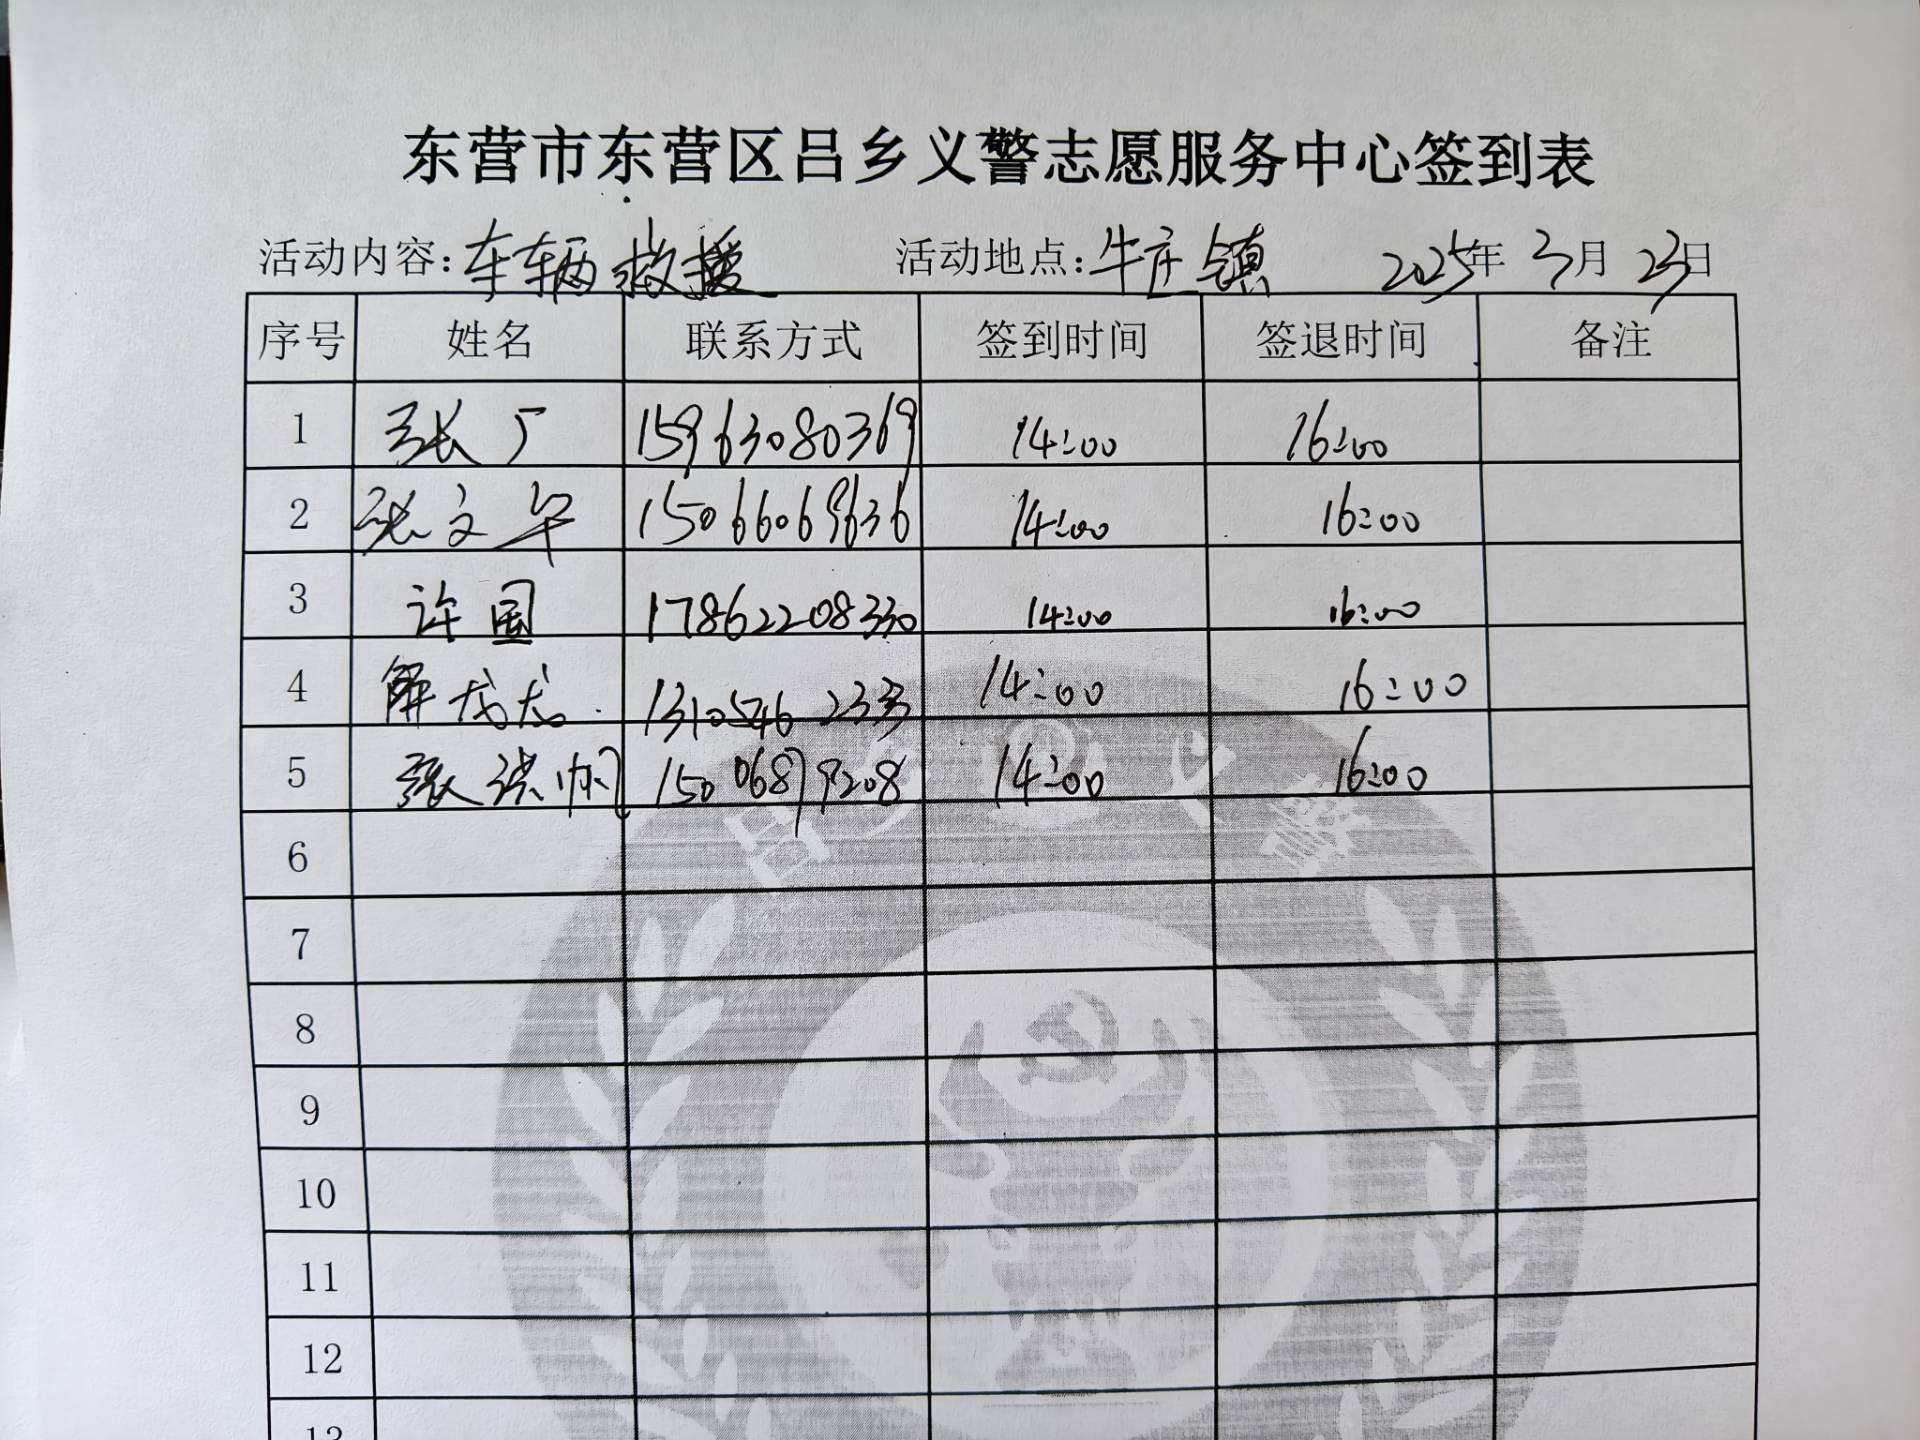 东营市东营区吕乡义警志愿服务中心签到表
活动内容：车辆救援 活动地点：牛庄镇 2025年3月23日
序号 姓名 联系方式 签到时间 签退时间 备注
1 张广 15963080369 14:00 16:00
2 张文华 15066069636 14:00 16:00
3 许国 17862208330 14:00 16:00
4 解 14:00 16:00
5 张 帅 15006879208 14:00 16:00
吕乡义警
6
7
8
9
10
11
12
13